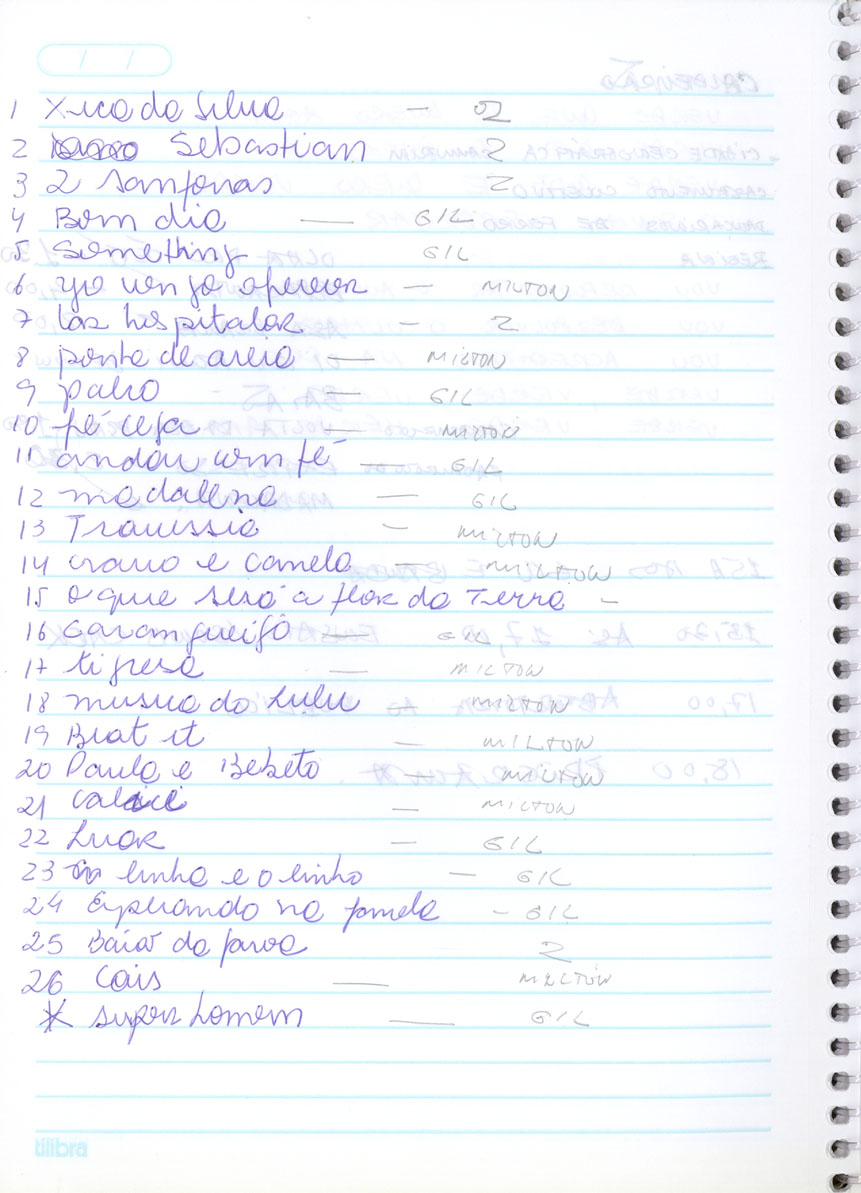 1 Xica da Silva — 2
2 Sebastian 2
3 2 Sanfonas 2
4 Bom dia — GIL
5 Something GIL
6 yo vengo oferecer — MILTON
7 los hospitalar — 2
8 ponta de areia — MILTON
9 palco — GIL
10 fé cega — MILTON
11 andar com fé — GIL
12 madalena — GIL
13 Travessia — MILTON
14 cravo e canela — MILTON
15 o que será a flor da Terra —
16 Carangueijo — GIL
17 tigresa — MILTON
18 musica do Lulu — MILTON
19 Beat it — MILTON
20 Paula e Bebeto — MILTON
21 — MILTON
22 Luar — GIL
23 linha e o linho — GIL
24 Esperando na janela — GIL
25 Baiao da 2
26 Cais — MILTON
* super homem — GIL
tilibra